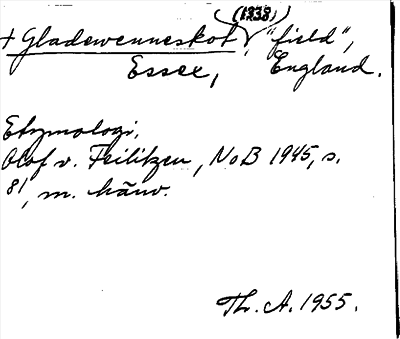 (1338)
+ Gladewenneskot, "field",
Essex, England.
Etymologi.
Olof v. Feilitzen, NoB 1945, s.
81, m. hänv.
Th. A. 1955.